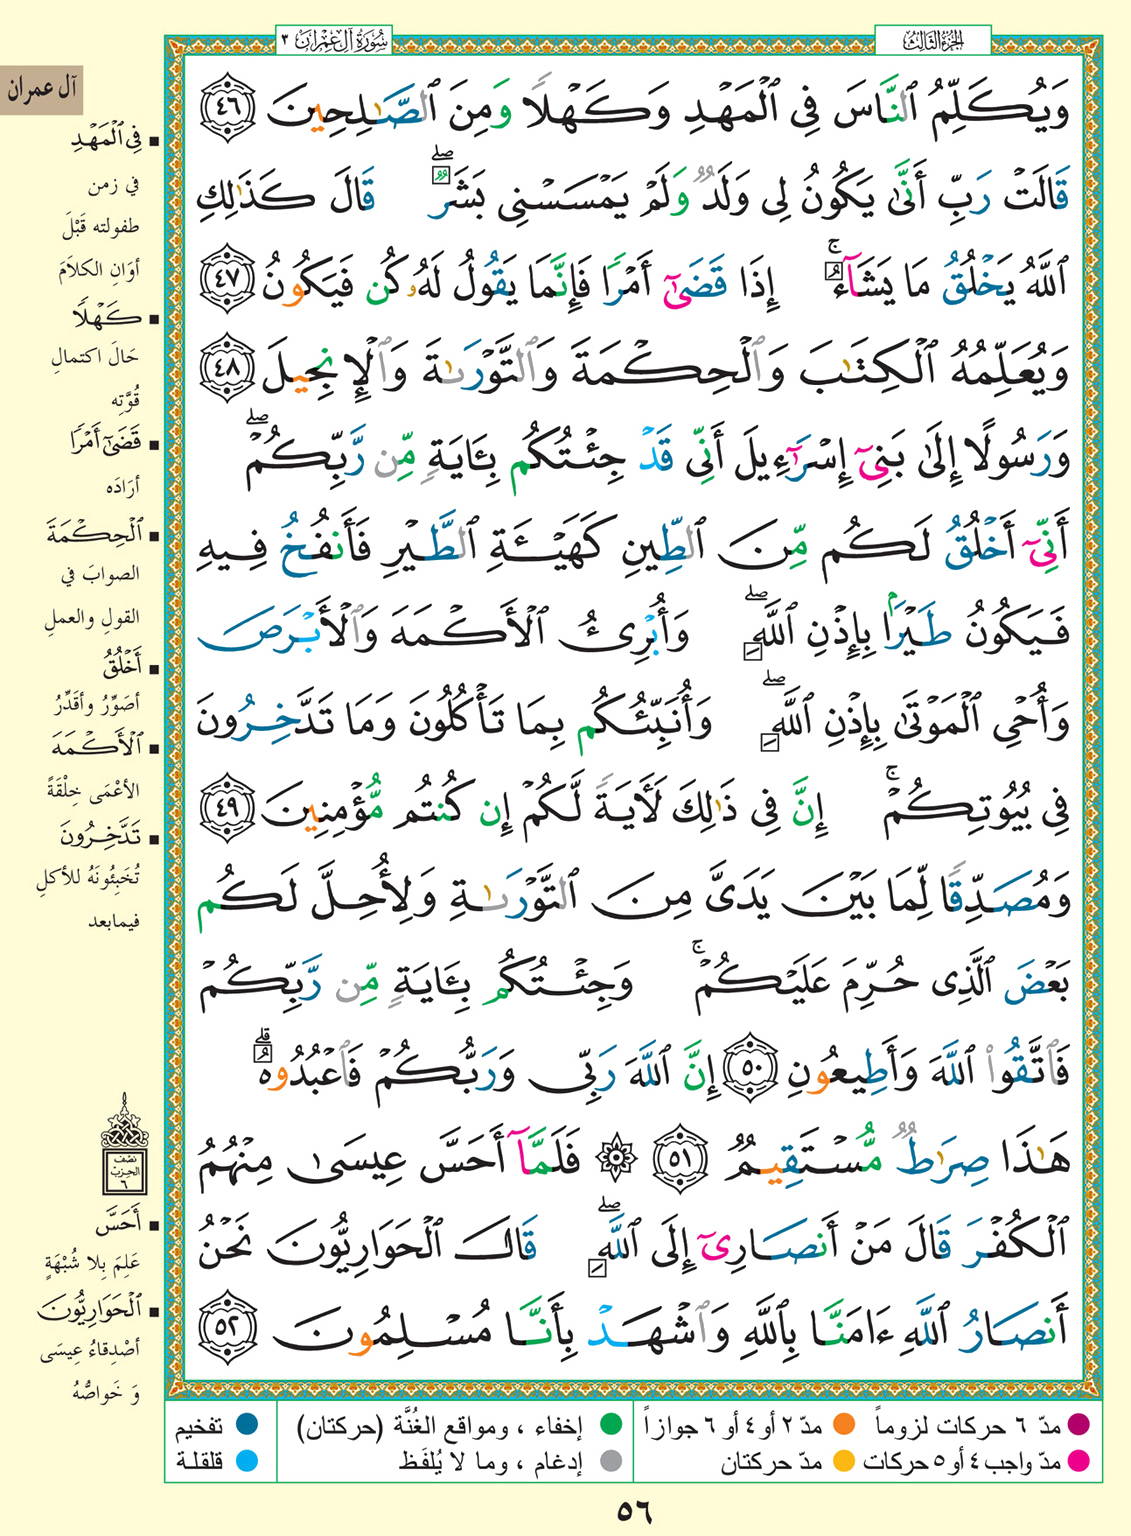 سُورَةُ آلِ عِمْرَانَ ٣
الجُزءُ الثَّالِث
آل عمران
وَيُكَلِّمُ ٱلنَّاسَ فِى ٱلْمَهْدِ وَكَهْلًا وَمِنَ ٱلصَّـٰلِحِينَ ٤٦
قَالَتْ رَبِّ أَنَّىٰ يَكُونُ لِى وَلَدٌ وَلَمْ يَمْسَسْنِى بَشَرٌ ۖ قَالَ كَذَٰلِكِ
ٱللَّهُ يَخْلُقُ مَا يَشَآءُ ۚ إِذَا قَضَىٰٓ أَمْرًا فَإِنَّمَا يَقُولُ لَهُۥ كُن فَيَكُونُ ٤٧
وَيُعَلِّمُهُ ٱلْكِتَـٰبَ وَٱلْحِكْمَةَ وَٱلتَّوْرَىٰةَ وَٱلْإِنجِيلَ ٤٨
وَرَسُولًا إِلَىٰ بَنِىٓ إِسْرَٰٓءِيلَ أَنِّى قَدْ جِئْتُكُم بِـَٔايَةٍ مِّن رَّبِّكُمْ ۖ
أَنِّىٓ أَخْلُقُ لَكُم مِّنَ ٱلطِّينِ كَهَيْـَٔةِ ٱلطَّيْرِ فَأَنفُخُ فِيهِ
فَيَكُونُ طَيْرًۢا بِإِذْنِ ٱللَّهِ ۖ وَأُبْرِئُ ٱلْأَكْمَهَ وَٱلْأَبْرَصَ
وَأُحْىِ ٱلْمَوْتَىٰ بِإِذْنِ ٱللَّهِ ۖ وَأُنَبِّئُكُم بِمَا تَأْكُلُونَ وَمَا تَدَّخِرُونَ
فِى بُيُوتِكُمْ ۚ إِنَّ فِى ذَٰلِكَ لَـَٔايَةً لَّكُمْ إِن كُنتُم مُّؤْمِنِينَ ٤٩
وَمُصَدِّقًا لِّمَا بَيْنَ يَدَىَّ مِنَ ٱلتَّوْرَىٰةِ وَلِأُحِلَّ لَكُم
بَعْضَ ٱلَّذِى حُرِّمَ عَلَيْكُمْ ۚ وَجِئْتُكُم بِـَٔايَةٍ مِّن رَّبِّكُمْ
فَٱتَّقُوا۟ ٱللَّهَ وَأَطِيعُونِ ٥٠ إِنَّ ٱللَّهَ رَبِّى وَرَبُّكُمْ فَٱعْبُدُوهُ ۗ
هَـٰذَا صِرَٰطٌ مُّسْتَقِيمٌ ٥١ ۞ فَلَمَّآ أَحَسَّ عِيسَىٰ مِنْهُمُ
ٱلْكُفْرَ قَالَ مَنْ أَنصَارِىٓ إِلَى ٱللَّهِ ۖ قَالَ ٱلْحَوَارِيُّونَ نَحْنُ
أَنصَارُ ٱللَّهِ ءَامَنَّا بِٱللَّهِ وَٱشْهَدْ بِأَنَّا مُسْلِمُونَ ٥٢
▪ فِى ٱلْمَهْدِ
في زمن
طفولته قَبْلَ
أوَانِ الكلاَمَ
▪ كَهْلًا
حَالَ اكتمالِ
قُوَّتِه
▪ قَضَىٰٓ أَمْرًا
أرَادَه
▪ ٱلْحِكْمَةَ
الصوابَ في
القولِ والعملِ
▪ أَخْلُقُ
أصَوِّرُ وأقَدِّرُ
▪ ٱلْأَكْمَهَ
الأعْمَى خِلْقَةً
▪ تَدَّخِرُونَ
تُخَبِئُونَهُ للأكلِ
فيمابعد
نصف
الحزب
٦
▪ أَحَسَّ
عَلِمَ بِلا شُبْهَةٍ
▪ ٱلْحَوَارِيُّونَ
أصْدِقاءُ عِيسَى
وَ خَواصُّهُ
مدّ ٦ حركات لزوماً
مدّ ٢ أو ٤ أو ٦ جوازاً
إخفاء ، ومواقع الغُنَّة (حركتان)
تفخيم
مدّ واجب ٤ أو ٥ حركات
مدّ حركتان
إدغام ، وما لا يُلفَظ
قلقلـة
٥٦